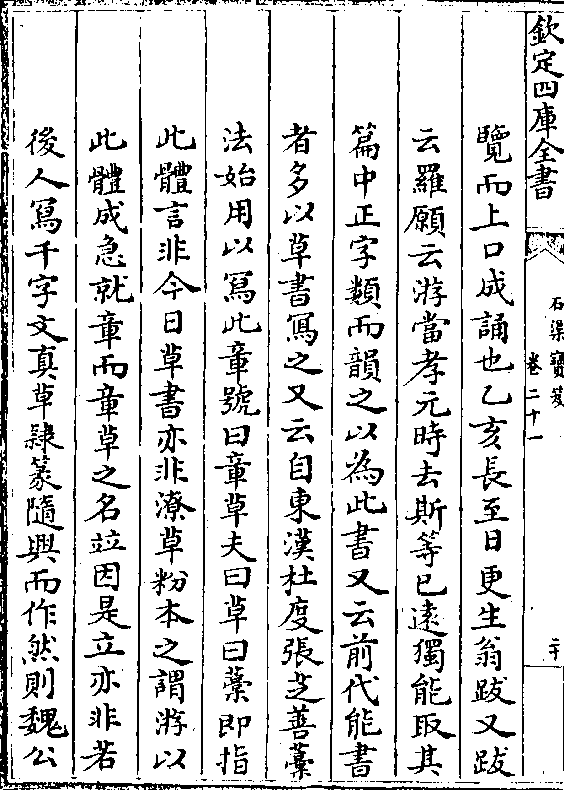 欽定四庫全書
石渠寶笈
卷二十一
二十
覽而上口成誦也乙亥長至日更生翁跋又跋
云羅願云游當孝元時去斯等已遠獨能取其
篇中正字類而韻之以為此書又云前代能書
者多以草書寫之又云自東漢杜度張芝善藁
法始用以寫此章號曰章草夫曰草曰藁即指
此體言非今日草書亦非潦草粉本之謂游以
此體成急就章而章草之名竝因是立亦非若
後人寫千字文真草隸篆隨興而作然則魏公